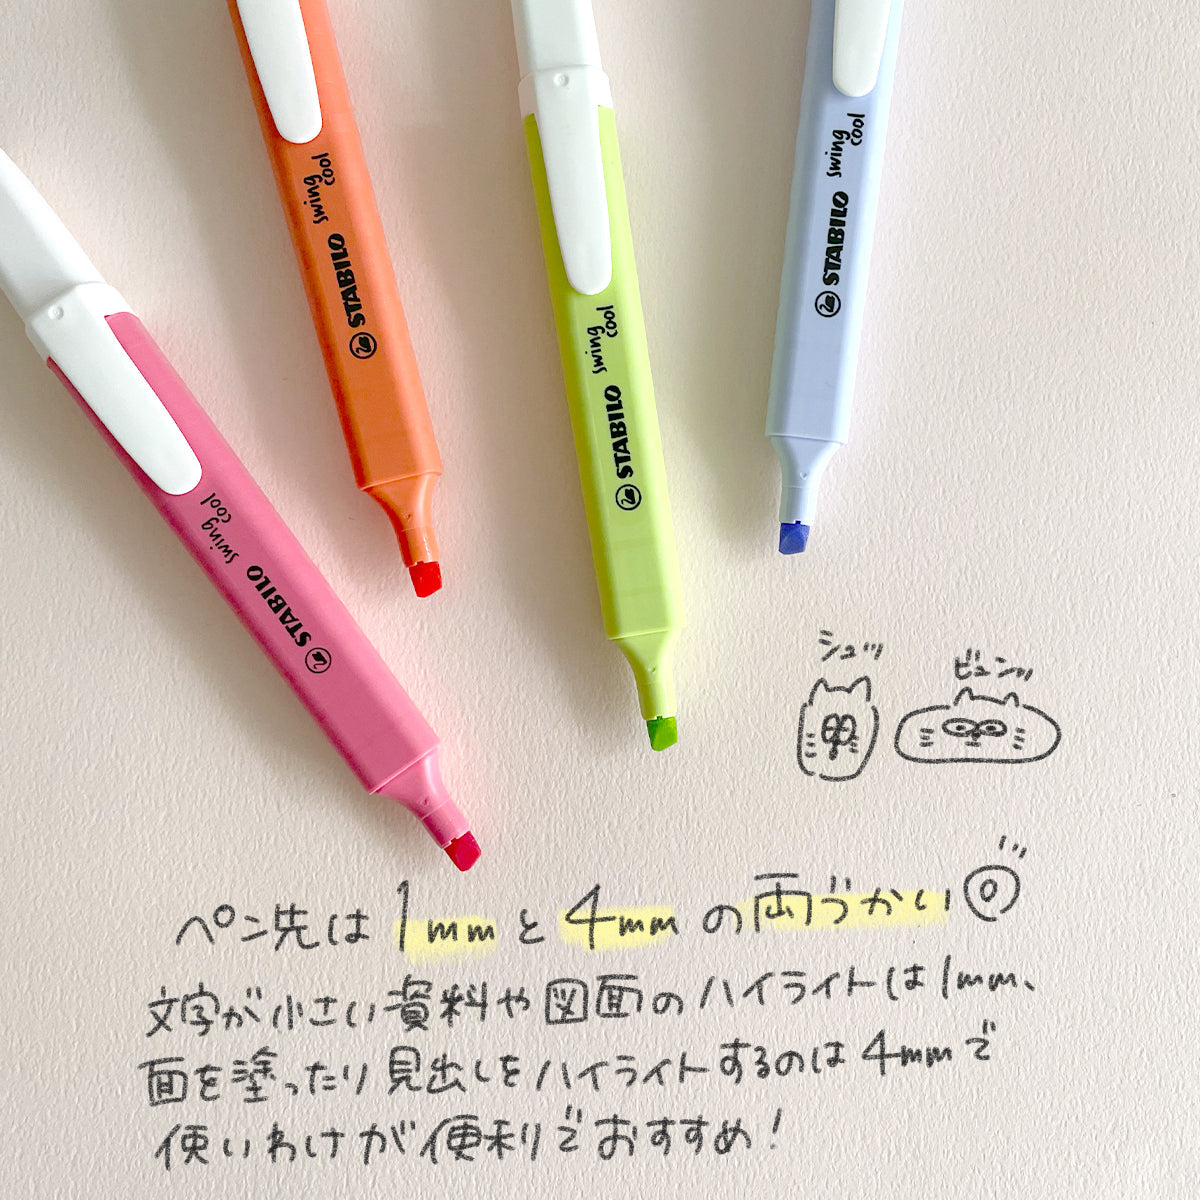 STABILO swing cool
STABILO swing cool
STABILO swing cool
STABILO swing cool
シュッ
ビュンッ
ペン先は1mmと4mmの両づかい
文字が小さい資料や図面のハイライトは1mm、
面を塗ったり見出しをハイライトするのは4mmで
使いわけが便利でおすすめ!